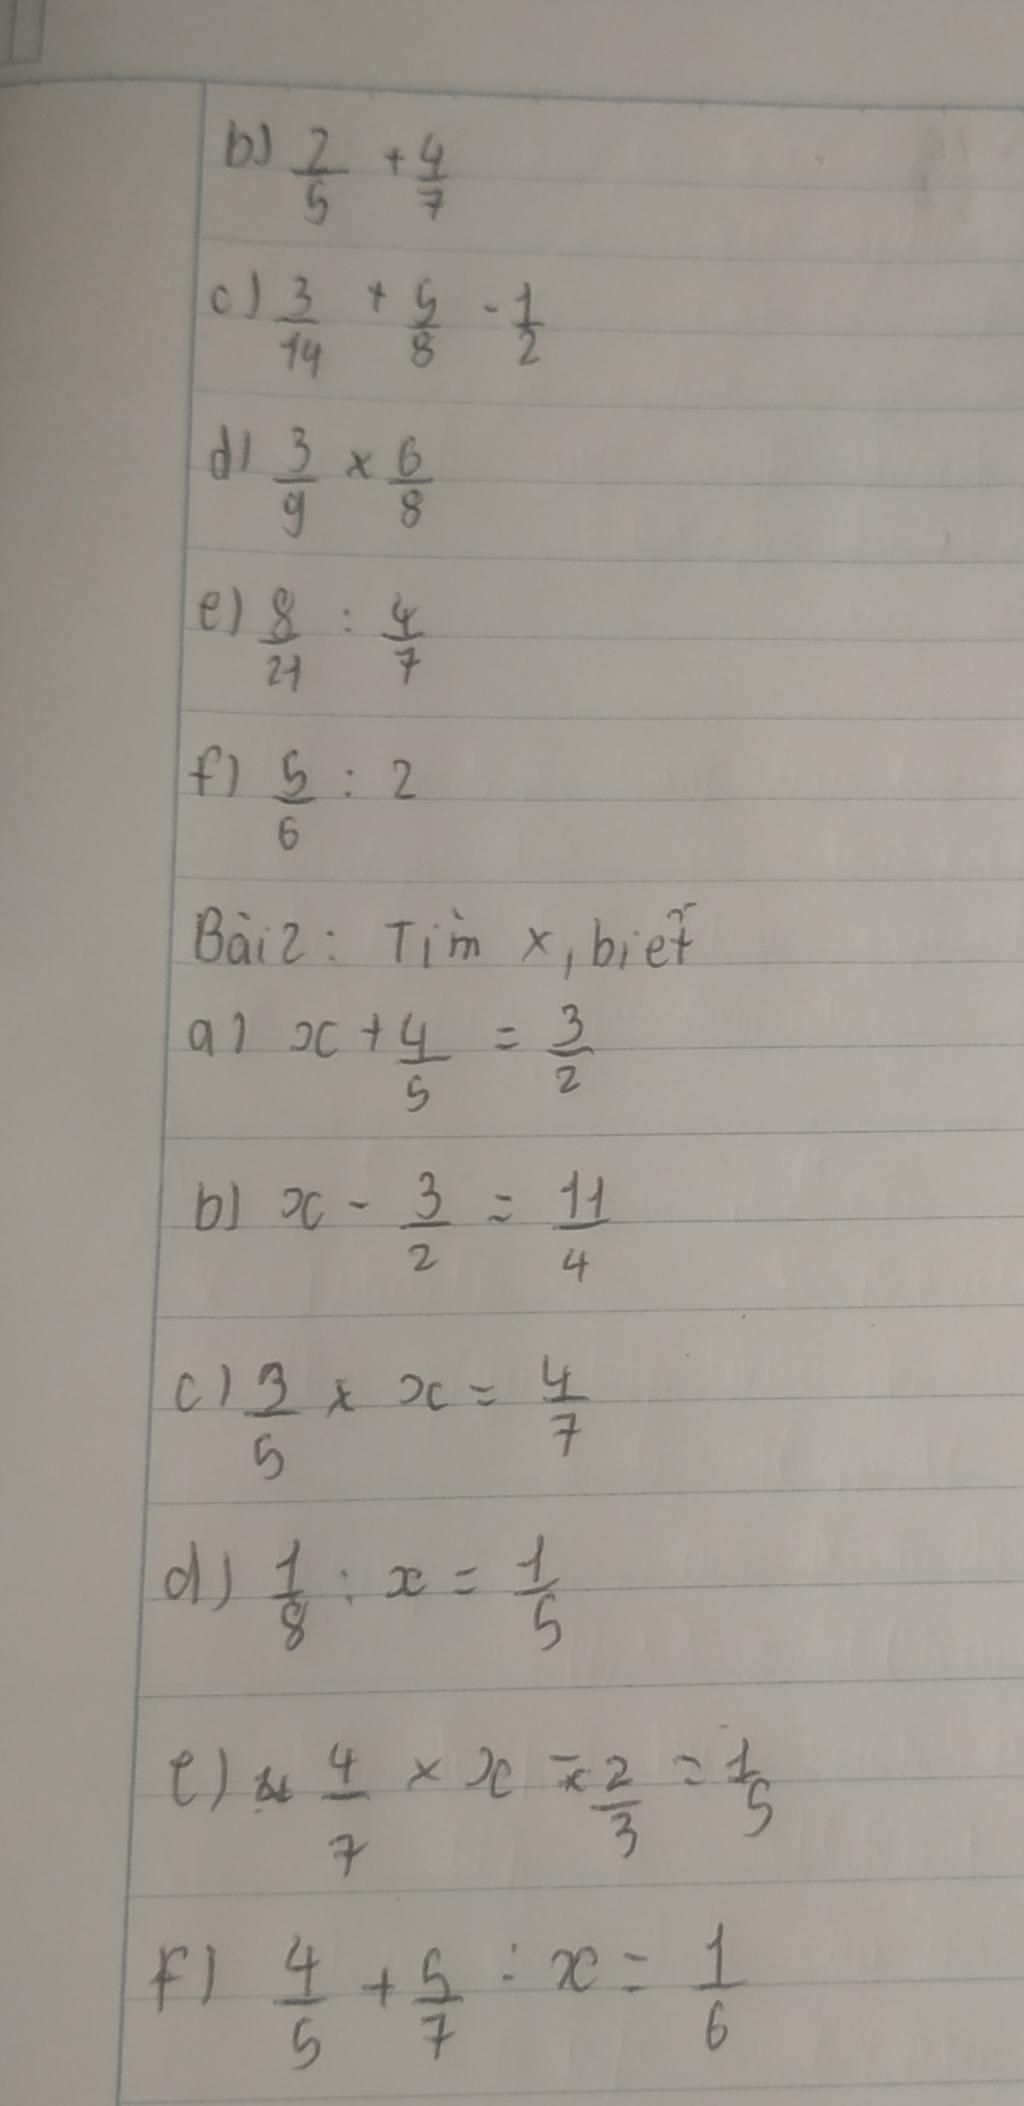 b) 2/5 + 4/7
c) 3/14 + 5/8 - 1/2
d) 3/9 x 6/8
e) 8/21 : 4/7
f) 5/6 : 2
Bài 2: Tìm x, biết
a) x + 4/5 = 3/2
b) x - 3/2 = 11/4
c) 3/5 x x = 4/7
d) 1/8 : x = 1/5
e) 4/7 x x - 2/3 = 1/5
f) 4/5 + 5/7 : x = 1/6